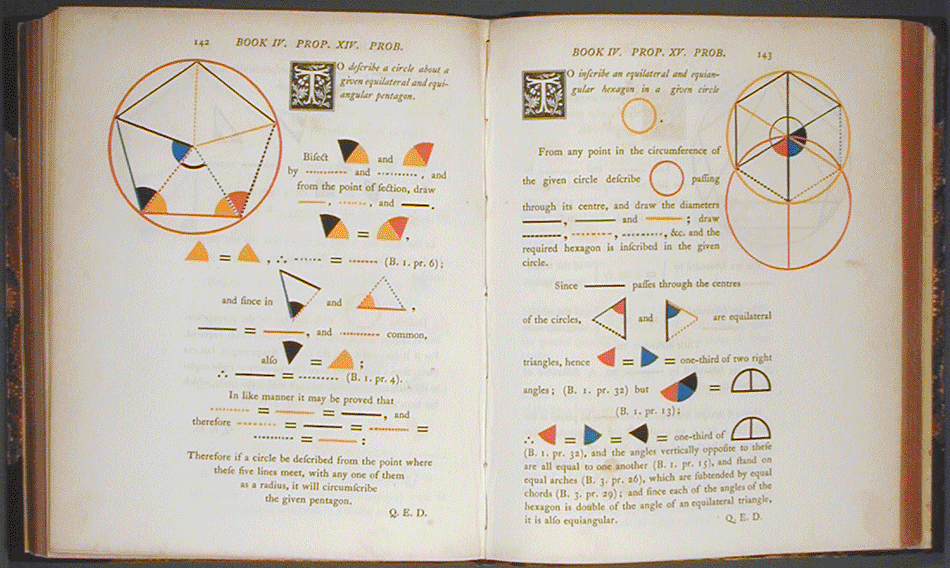 142 BOOK IV. PROP. XIV. PROB.
TO deſcribe a circle about a
given equilateral and equi-
angular pentagon.
Biſect and
by and , and
from the point of ſection, draw
, , and .
= ,
= , ∴ = (B. 1. pr. 6);
and ſince in and ,
= , and common,
alſo = ;
∴ = (B. 1. pr. 4).
In like manner it may be proved that
= = , and
therefore = = =
= :
Therefore if a circle be deſcribed from the point where
theſe five lines meet, with any one of them
as a radius, it will circumſcribe
the given pentagon.
Q. E. D.
BOOK IV. PROP. XV. PROB. 143
TO inſcribe an equilateral and equian-
gular hexagon in a given circle
.
From any point in the circumference of
the given circle deſcribe paſſing
through its centre, and draw the diameters
, and ; draw
, , , &c. and the
required hexagon is inſcribed in the given
circle.
Since paſſes through the centres
of the circles, and are equilateral
triangles, hence = = one-third of two right
angles; (B. 1. pr. 32) but =
(B. 1. pr. 13);
∴ = = = one-third of
(B. 1. pr. 32), and the angles vertically oppoſite to theſe
are all equal to one another (B. 1. pr. 15), and ſtand on
equal arches (B. 3. pr. 26), which are ſubtended by equal
chords (B. 3. pr. 29); and ſince each of the angles of the
hexagon is double of the angle of an equilateral triangle,
it is alſo equiangular. Q. E. D.